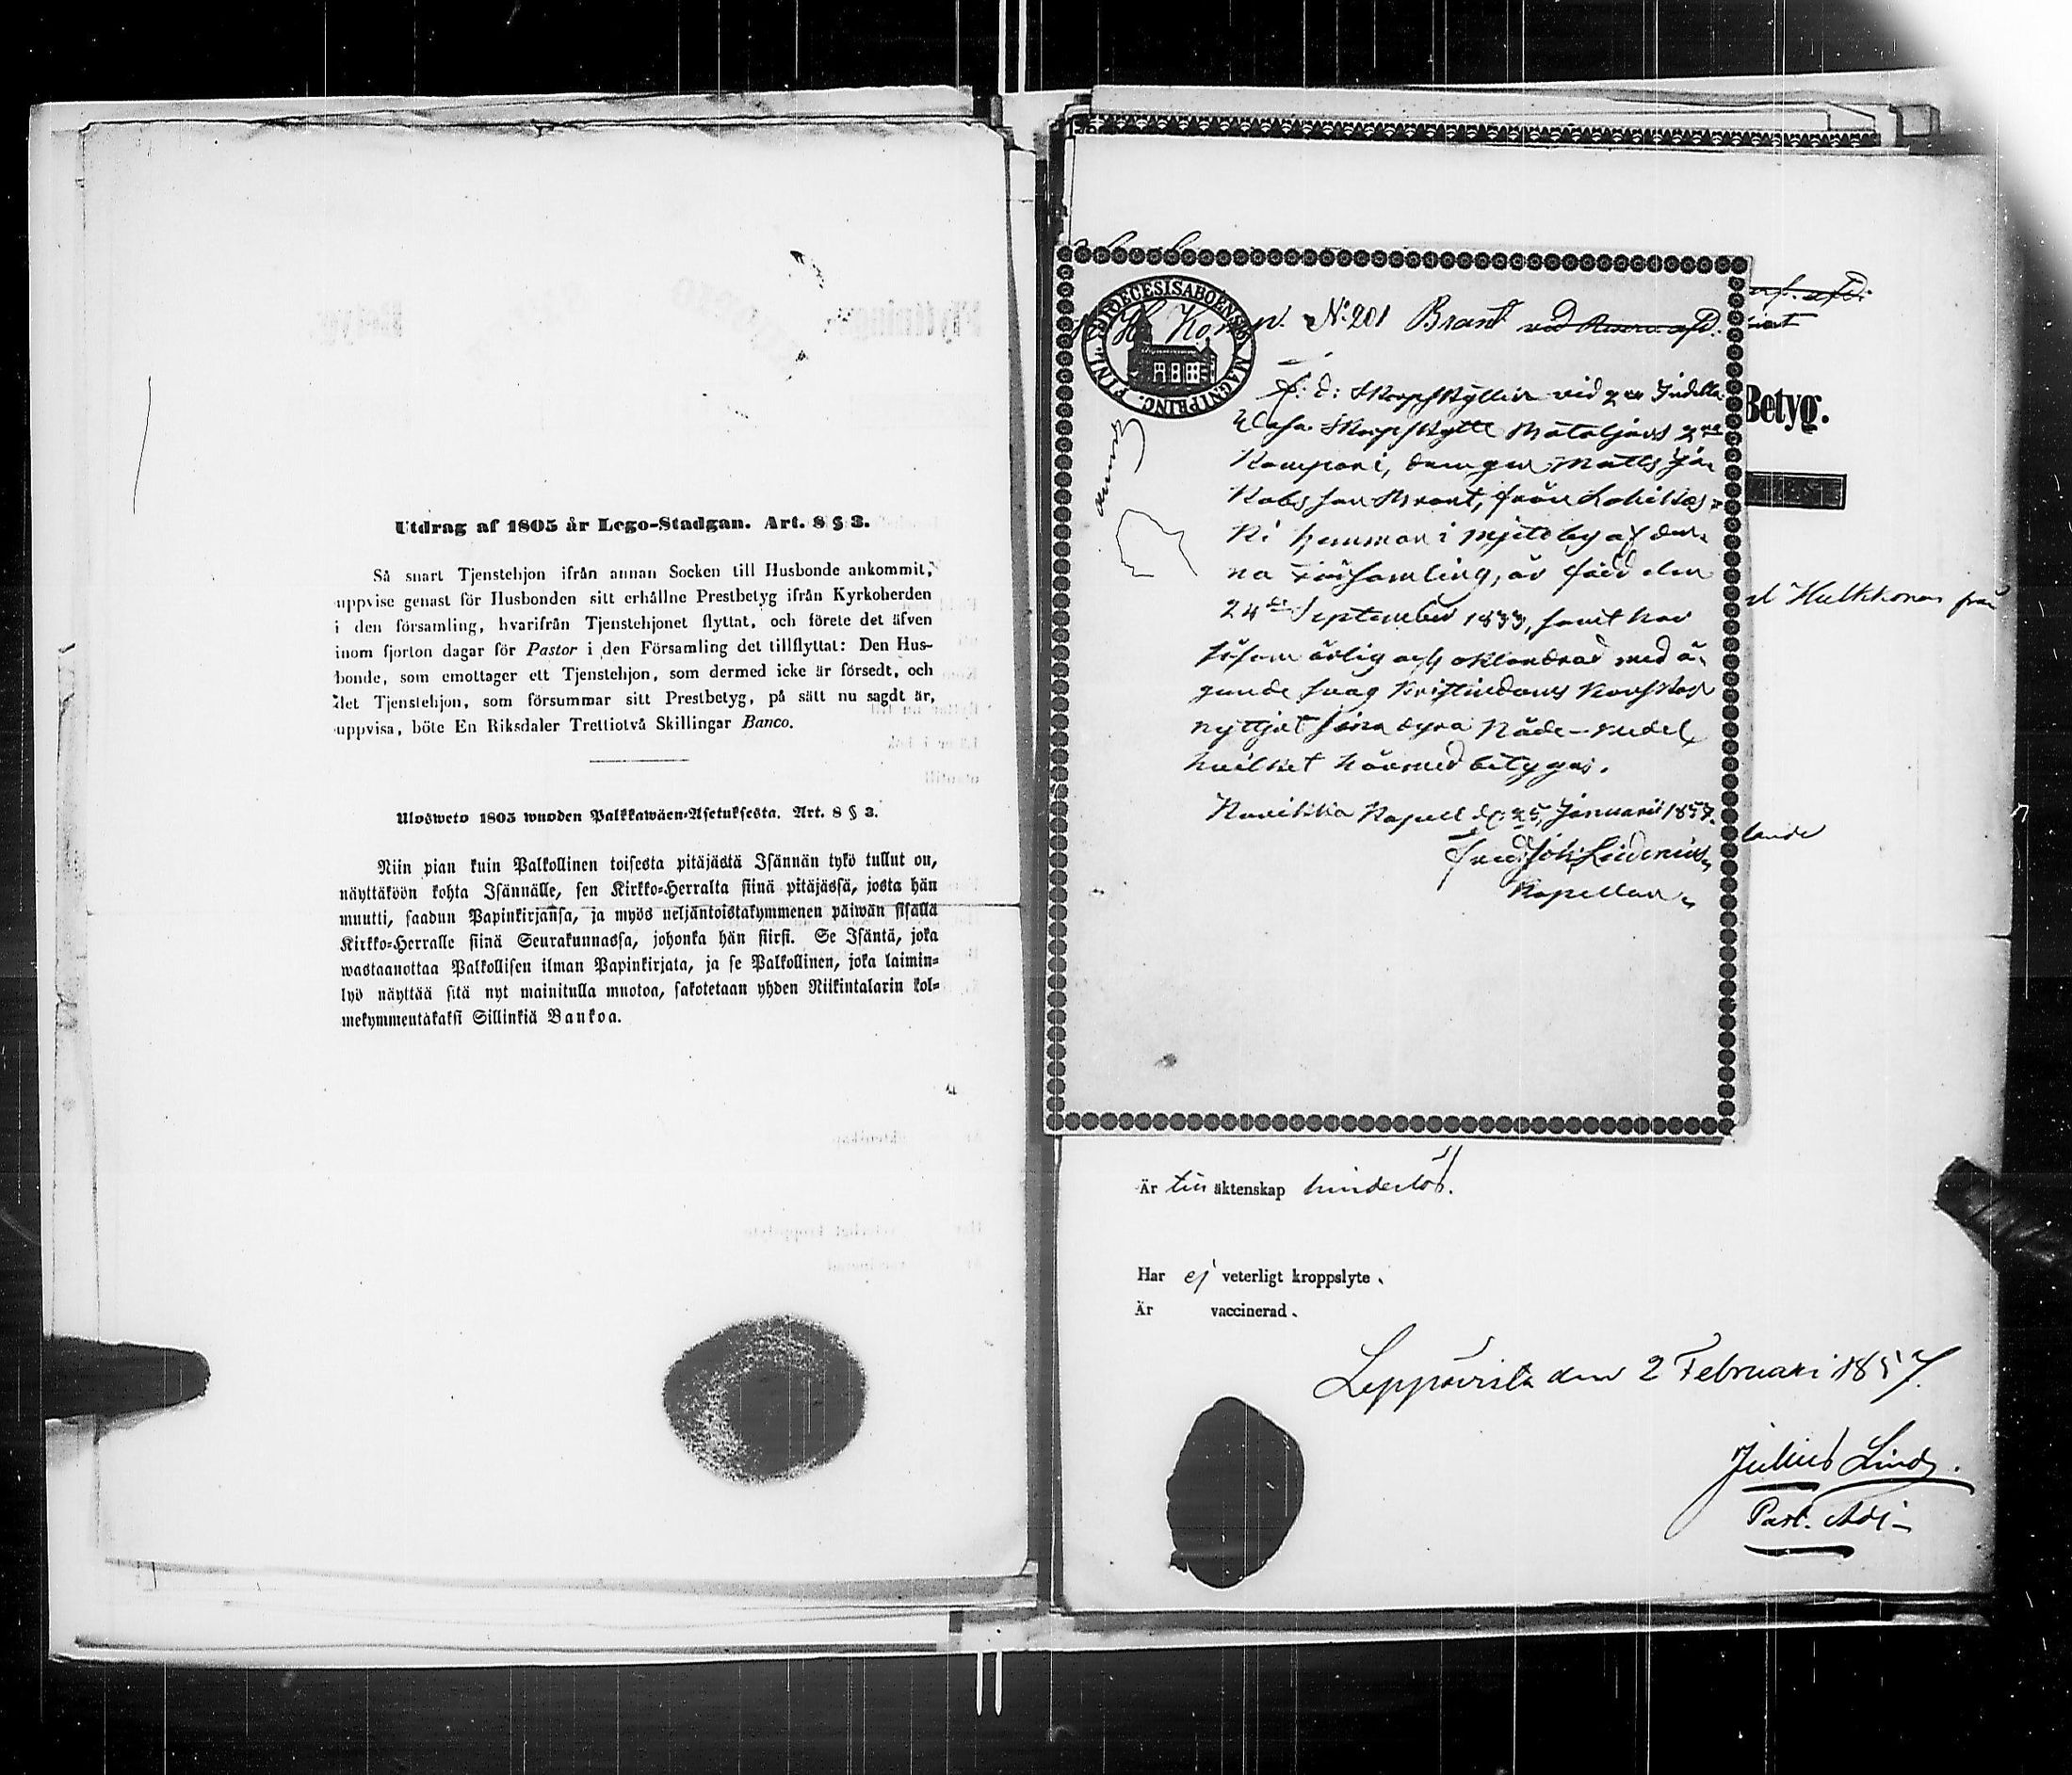 Utdrag af 1805 år Lego-Stadgan. Art. 8 § 3.
Så snart Tjenstehjon ifrån annan Socken till Husbonde ankommit,
uppvise genast för Husbonden sitt erhållne Prestbetyg ifrån Kyrkoherden
i den församling, hvarifrån Tjenstehjonet flyttat, och förete det äfven
inom fjorton dagar för Pastor i den Församling det tillflyttat: Den Hus-
bonde, som emottager ett Tjenstehjon, som dermed icke är försedt, och
det Tjenstehjon, som försummar sitt Prestbetyg, på sätt nu sagdt är,
uppvisa, böte En Riksdaler Trettiotvå Skillingar Banco.
Ulosweto 1805 wuoden Palkkawäen-Asetuksesta. Art. 8 § 3.
Niin pian kuin Palkollinen toisesta pitäjästä Isännän tykö tullut on,
näyttäköön kohta Isännälle, sen Kirkko-Herralta siinä pitäjässä, josta hän
muutti, saadun Papinkirjansa, ja myös neljäntoistakymmenen päiwän sisällä
Kirkko-Herralle siinä Seurakunnassa, johonka hän siirsi. Se Isäntä, joka
wastaanottaa Palkollisen ilman Papinkirjata, ja se Palkollinen, joka laimin-
lyö näyttää sitä nyt mainitulla muotoa, sakotetaan yhden Riikintalarin kol-
mekymmentäkaksi Sillinkiä Bankoa.
DIOECESIS ABOENSIS MAGNI PRINC. FINL.
Komp. N:o 201 Brant
F. d. Skarpskytten vid 2:ra Indelta
Wasa Skarpskytte Bataljons 2:ra
Kompani, drängen Matts Ja-
kobsson Brant, från Lohikos-
ki hemman i Mjeto by af den-
na Församling, är född den
24:de September 1833, samt har
såsom ärlig och oklandrad med ä-
gande svag Kristendoms kunskap
nyttjat sina dyra Nåde-medel,
hvilket härmed betygas.
Kapell d. 25 Januarii 1857.
Fred. Joh.
Kapellan
Betyg.
Hulkkonen från
Är till äktenskap hinderlös.
Har ej veterligt kroppslyte.
Är vaccinerad.
Leppävirta den 2 Februari 1857.
Julius Lind
Past. Adj.